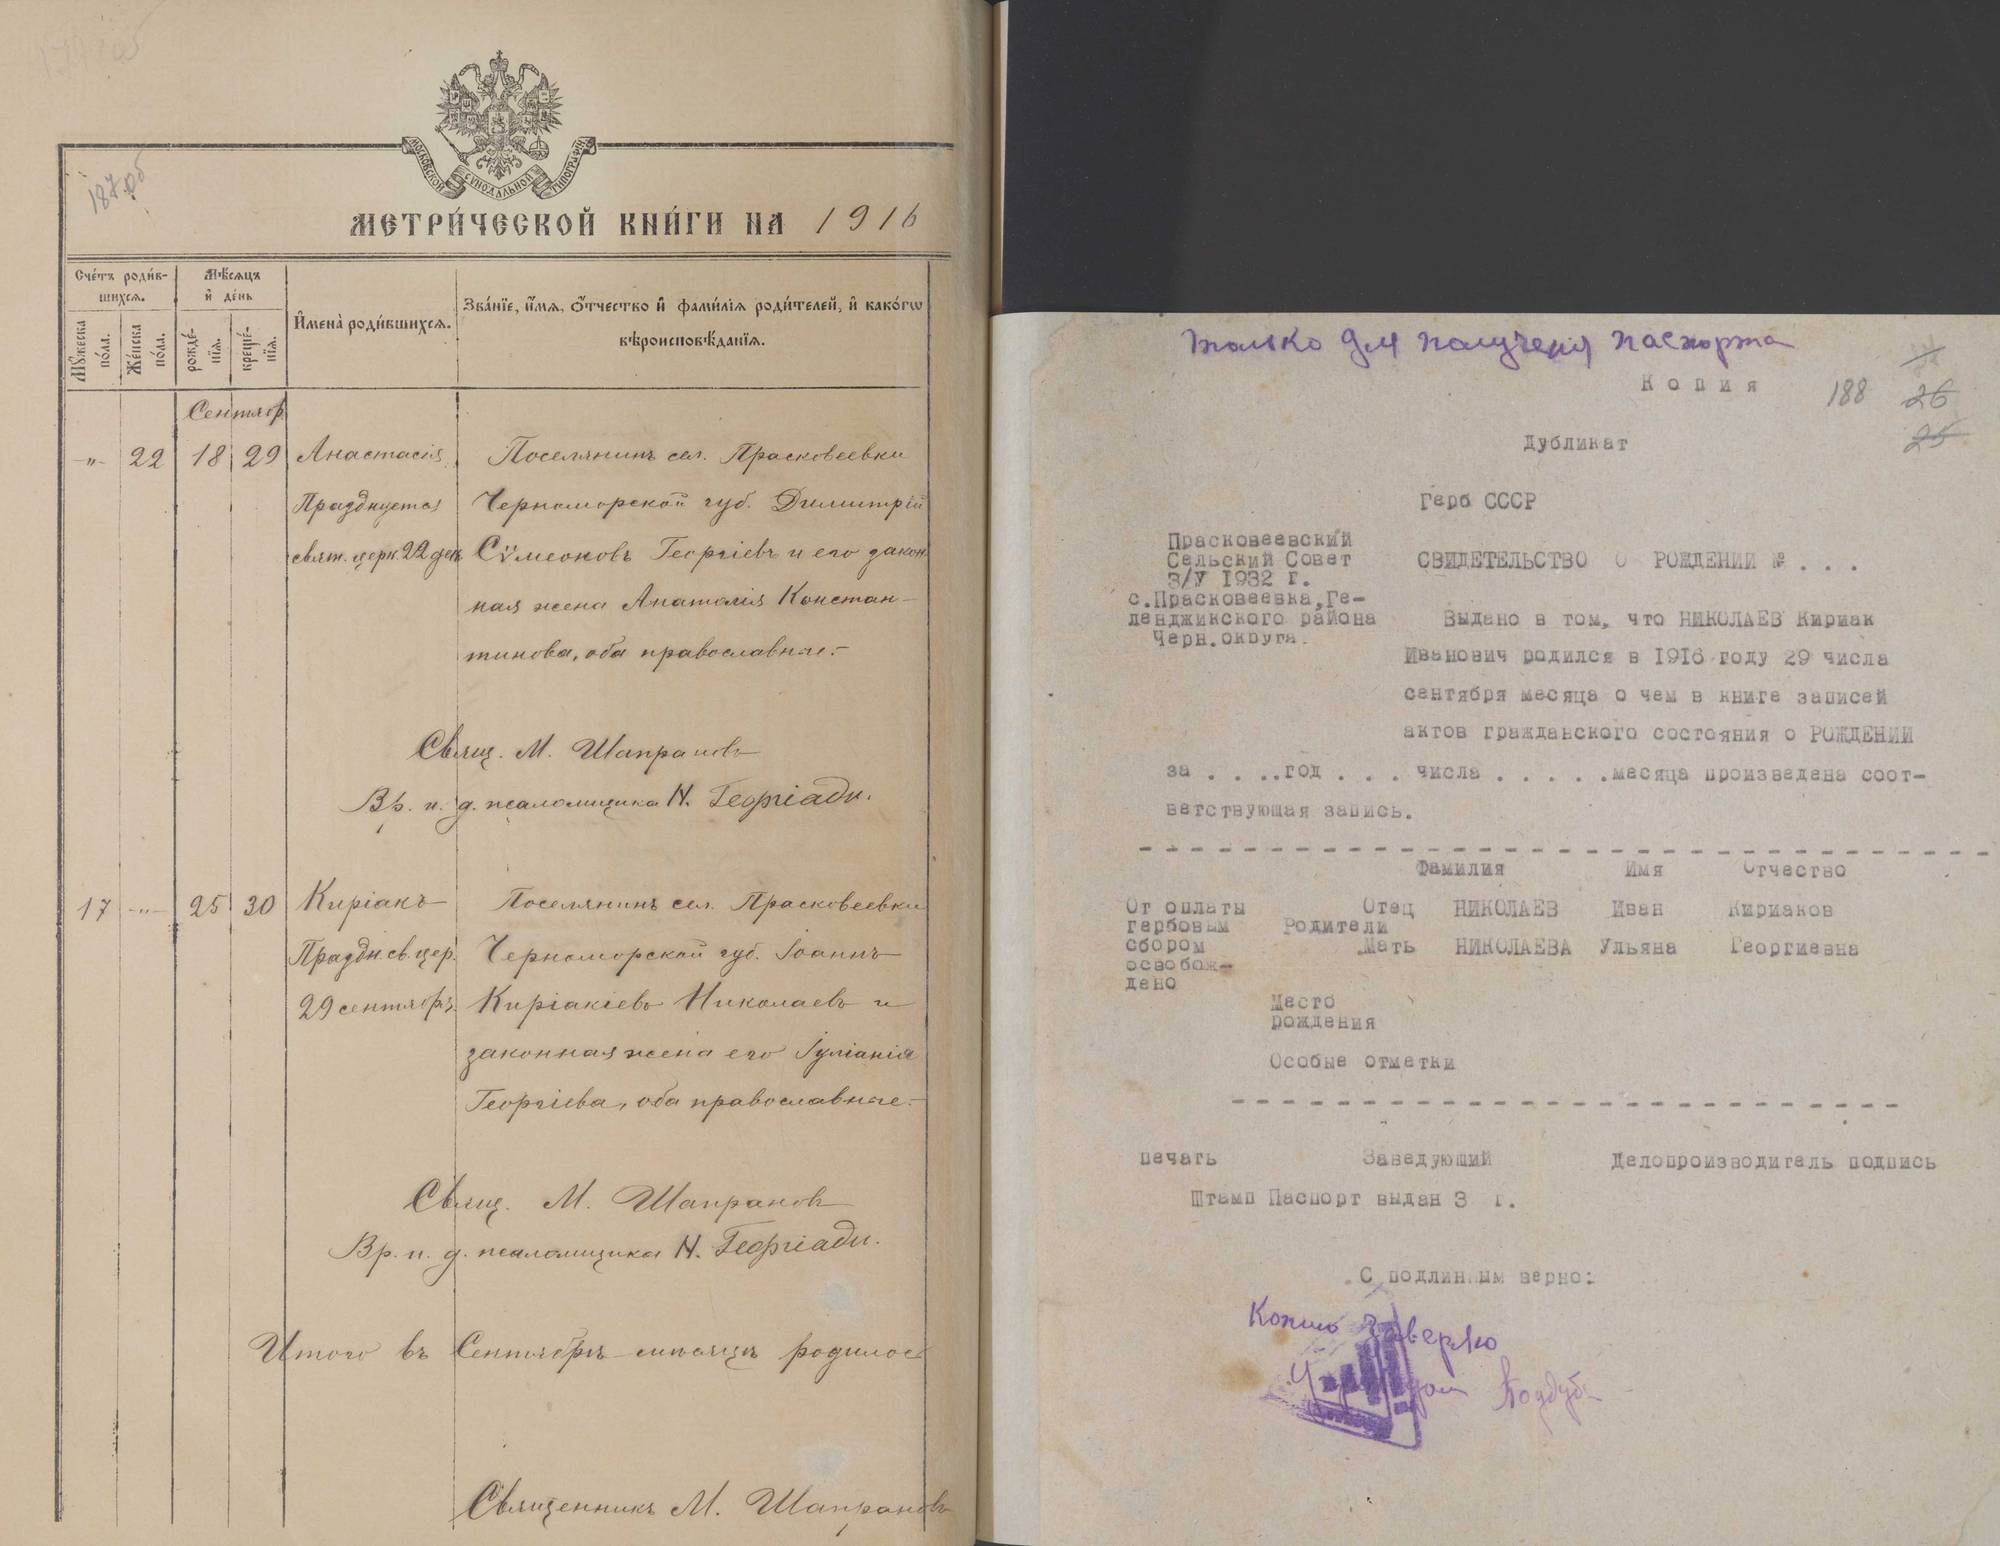 187 об
МОСКОВСКОЙ СУНОДАЛЬНОЙ ТИПОГРАФІИ
МЕТРИ́ЧЕСКОЙ КНИ́ГИ НА 1916
Сче́тъ роди́в-
шихсѧ.
Мѣ́сѧцъ
и҆ де́нь
Мꙋ́жеска
по́ла.
Же́нска
по́ла.
рожде́-
нїѧ.
креще́-
нїѧ.
И҆мена̀ роди́вшихсѧ.
Зва́нїе, и҆́мѧ, ѻ҆́тчество и҆ фами́лїѧ роди́телей, и҆ како́гѡ
вѣроисповѣ́данїѧ.
Сентяр.
-"- 22 18 29 Анастасія Поселянинъ сел. Прасковеевки
Празднуется Черноморской губ. Димитрій
свят. церк. 22 дек. Сѵмеоновъ Георгіевъ и его закон
ная жена Анатолія Констан-
тинова, оба православные.-
Свящ. М. Шапрановъ
Вр. и. д. псаломщика Н. Георгіади.
17 -"- 25 30 Киріакъ Поселянинъ сел. Прасковеевки
Праздн. св. цер. Черноморской губ. Іоаннъ
29 сентяря. Киріакіевъ Николаевъ и
законная жена его Іуліанія
Георгіева, оба православные.-
Свящ. М. Шапрановъ
Вр. и. д. псаломщика Н. Георгіади.
Итого въ Сентябрѣ мѣсяцѣ родилос
Священникъ М. Шапрановъ
только для получения паспорта
Копия
188
26
25
Дубликат
Герб СССР
Прасковеевский
Сельский Совет
З/У 1932 г.
с.Прасковеевка,Ге-
ленджикского района
Черн.округа.
СВИДЕТЕЛЬСТВО О РОЖДЕНИИ № . . .
Выдано в том, что НИКОЛАЕВ Кириак
Иванович родился в 1916 году 29 числа
сентября месяца о чем в книге записей
актов гражданского состояния о РОЖДЕНИИ
за . . ..год . . . числа . . . . .месяца произведена соот-
ветствующая запись.
Фамилия Имя Отчество
От оплаты
гербовым
сбором
освобож-
дено
Родители
Отец НИКОЛАЕВ Иван Кириаков
Мать НИКОЛАЕВА Ульяна Георгиевна
Место
рождения
Особые отметки
печать Заведующий Делопроизводитель подпись
Штамп Паспорт выдан 3 г.
С подлинным верно:
Копию заверяю